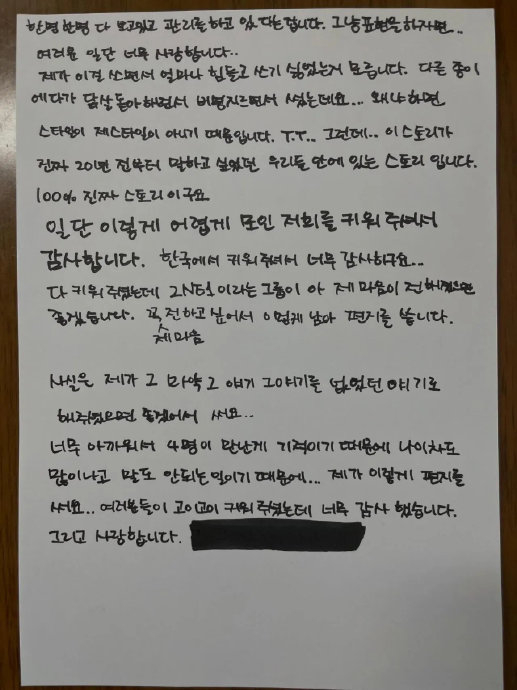 한명한명 다 보고있고 관리를하고 있다는겁니다. 그냥표현을하자면..
여러분 일단 너무 사랑합니다..
제가 이걸 쓰면서 얼마나 힘들고 쓰기 싫었는거 모릅니다. 다른 종이
에다가 닭살돋아하면서 버벅지르면서 썼는데요... 왜냐하면
스타일이 제스타일이 아니기 때문입니다. T.T.. 그런데.. 이스토리가
진짜 20년 전부터 말하고싶었던 우리들 안에 있는 스토리 입니다.
100% 진짜 스토리 이구요
일단 이렇게 어렵게 모인 저희를 키워 주셔서
감사합니다. 한국에서 키워주셔서 너무 감사하구요...
다 키워 주셨는데 2NE1 이라는그룹이 아 제마음이 전해졌으면
좋겠습니다. 꼭 전하고 싶어서 이렇게 남아 편지를 씁니다.
제마음
사실은 제가 그 마약 그 얘기 그이야기를 없었던 얘기로
해주셨으면 좋겠어서 써요..
너무 아까워서 4명이 만난게 기적이기 때문에 나이차도
많이나고 말도 안되는일이기 때문에... 제가 이렇게 편지를
써요.. 여러분들이 고이고이 키워주셨는데 너무 감사 했습니다.
그리고 사랑합니다.